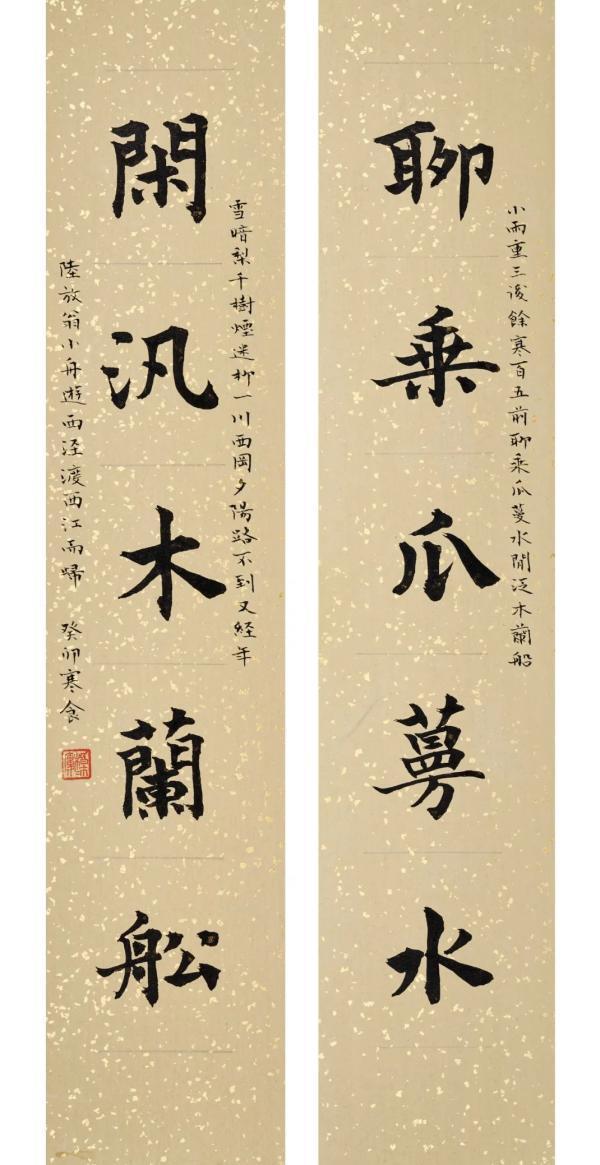 小雨重三後餘寒百五前聊乘瓜蔓水閒泛木蘭船
聊乘瓜蔓水
雪暗梨千樹煙迷柳一川西岡夕陽路不到又經年
閑汎木蘭舩
陸放翁小舟遊西涇渡西江而歸 癸卯寒食